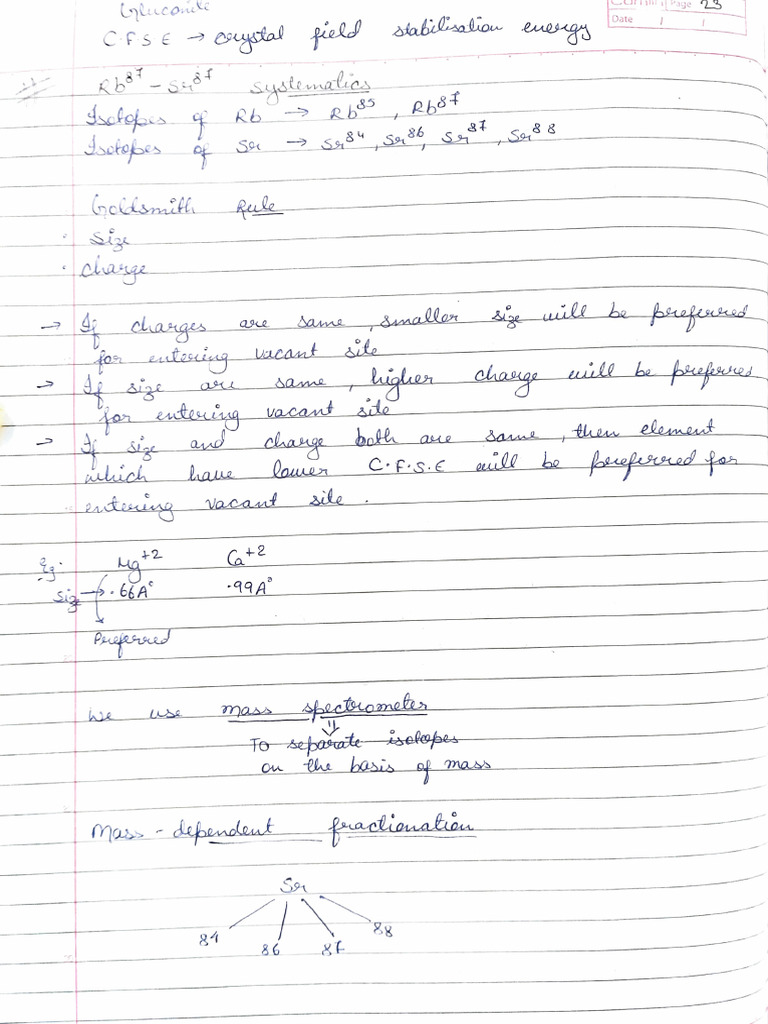 Page 23
Date / /
Gluconite
C.F.S.E → crystal field stabilisation energy
Rb87 - Sr87 systematics
Isotopes of Rb → Rb85, Rb87
Isotopes of Sr → Sr84, Sr86, Sr87, Sr88
Goldsmith Rule
· Size
· Charge
→ If charges are same, smaller size will be preferred
for entering vacant site
→ If size are same, higher charge will be preferred
for entering vacant site
→ If size and charge both are same, then element
which have lower C.F.S.E will be preferred for
entering vacant site.
Eg. Mg+2 Ca+2
Size → .66A° .99A°
Preferred
We use mass spectrometer
⇓
To separate isotopes
on the basis of mass
Mass-dependent fractionation
Sr
84 86 87 88